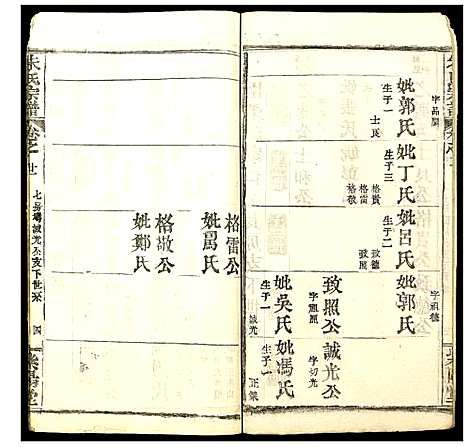 字品屬
妣郭氏
生子一
士良
妣丁氏
生子三
格貴
格雷
格敬
妣呂氏
生子二
致德
致照
字祖德
妣郭氏
致照公
字祖照
妣吳氏
生子一
誠光
誠光公
字切光
妣馮氏
生子一
正榮
格雷公
妣萬氏
格敬公
妣鄭氏
朱氏宗譜
卷之
世
誠光公支下世系
四